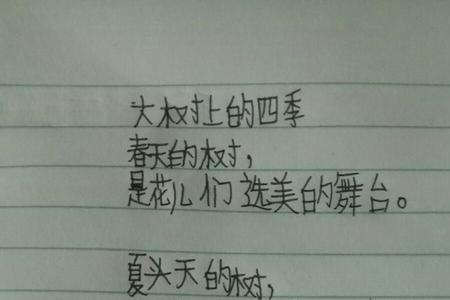 大树上的四季
春天的树，
是花儿们选美的舞台。
夏头天的树，